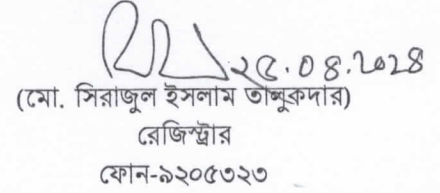 ২৫.০৪.২০২৪
(মো. সিরাজুল ইসলাম তালুকদার)
রেজিস্ট্রার
ফোন-৯২০৫৩২৩